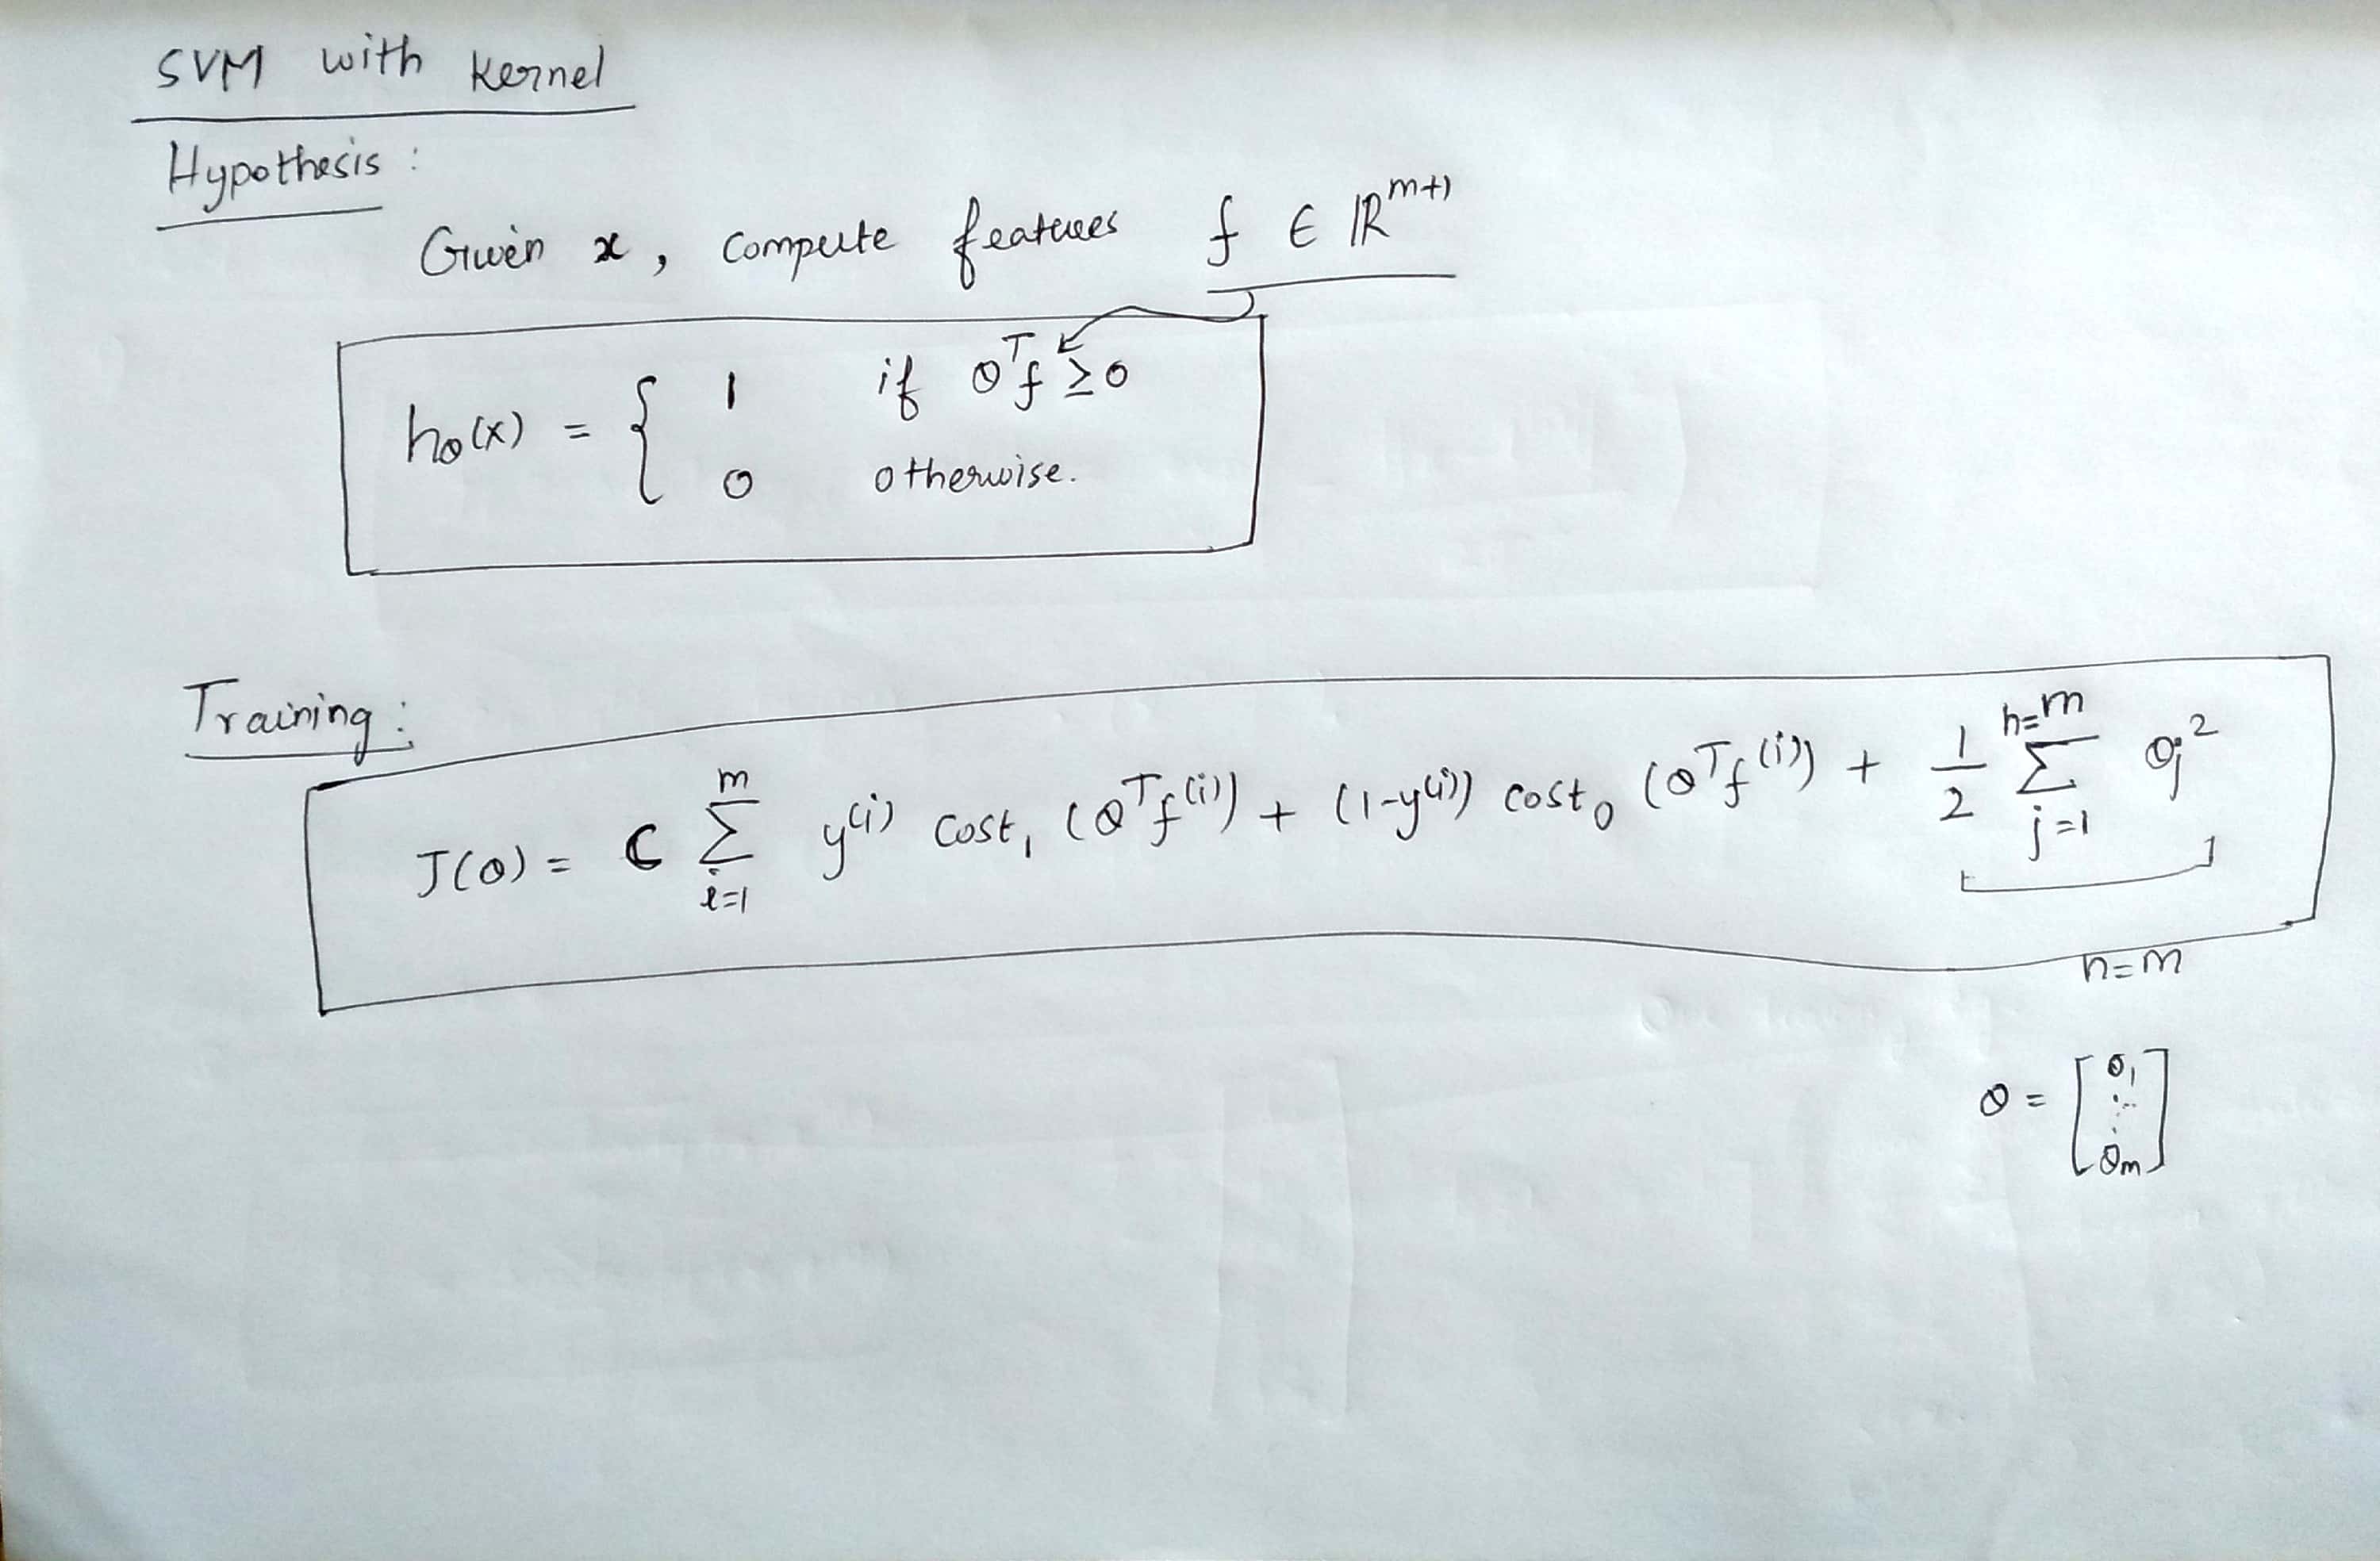 SVM with kernel
Hypothesis :
Given x, compute features f ∈ ℝ^{m+1}
h_θ(x) = { 1 if θ^T f ≥ 0
0 otherwise.
Training :
J(θ) = C Σ_{i=1}^{m} y^{(i)} cost_1 (θ^T f^{(i)}) + (1-y^{(i)}) cost_0 (θ^T f^{(i)}) + 1/2 Σ_{j=1}^{n=m} θ_j^2
n=m
θ = [θ_1 ⋮ θ_m]